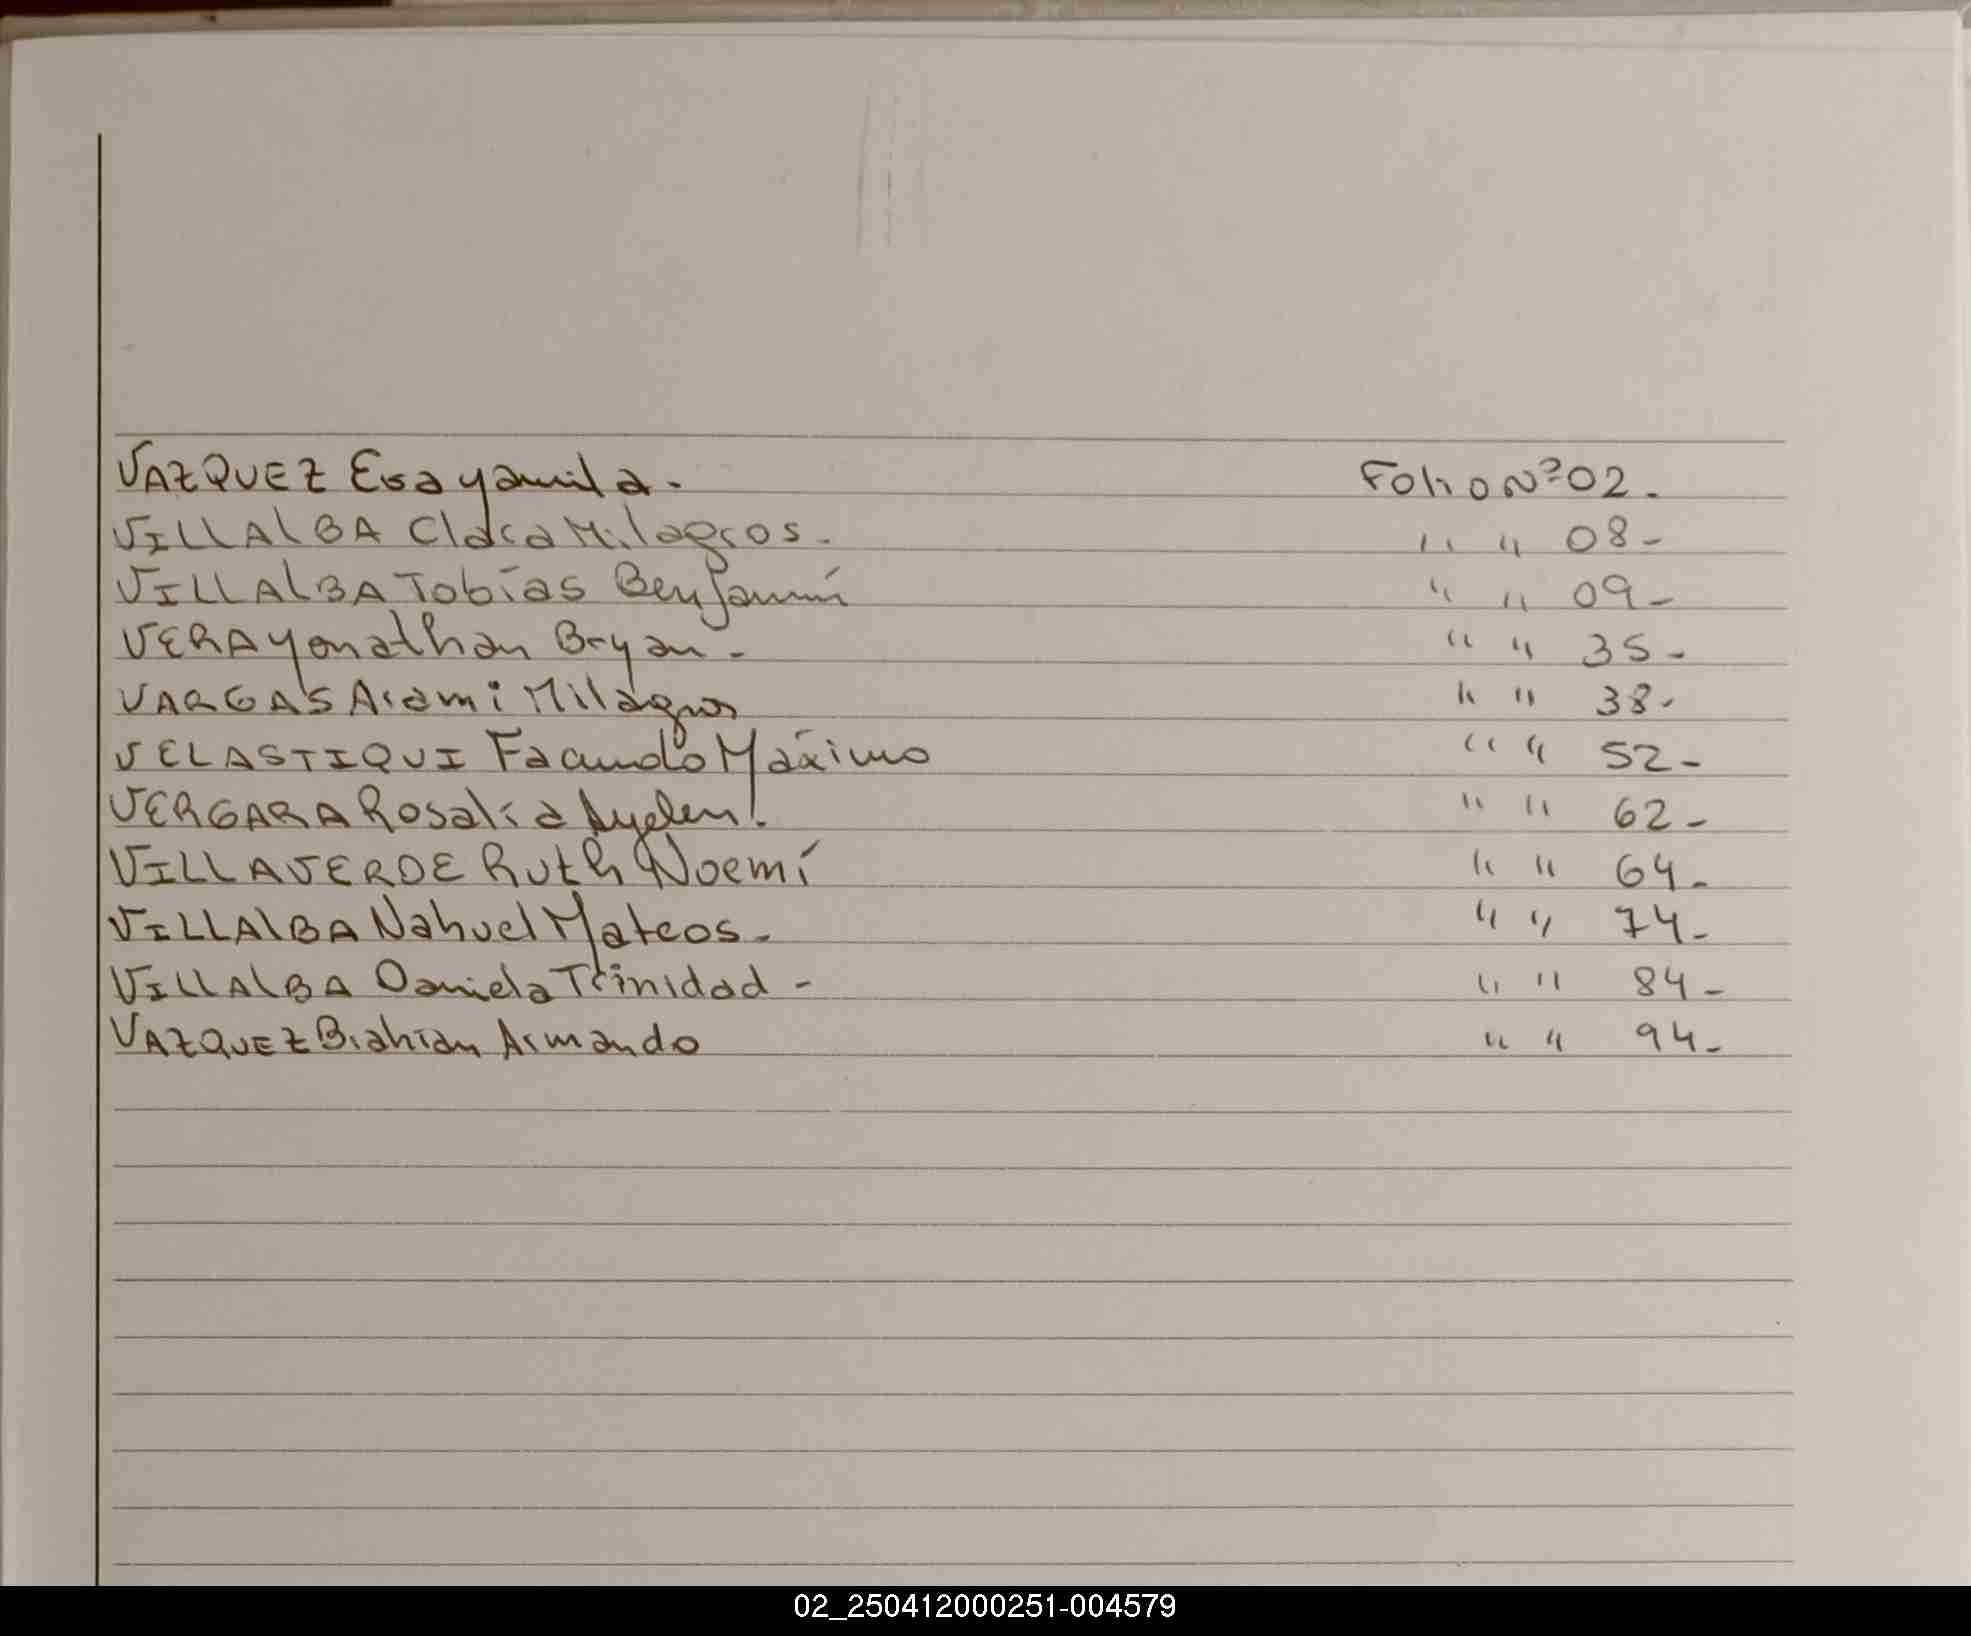 VAZQUEZ Eva yamila. Folio Nº 02.
VILLALBA Clara Milagros. " " 08-
VILLALBA Tobías Benjamín " " 09-
VERA yonathan Bryan - " " 35-
VARGAS Arami Milagros " " 38-
VELASTIQUI Facundo Máximo " " 52-
VERGARA Rosalía Ayelen. " " 62-
VILLAVERDE Ruth Noemí " " 64-
VILLALBA Nahuel Mateos. " " 74-
VILLALBA Daniela Trinidad - " " 84-
VAZQUEZ Brahian Armando " " 94-
02_250412000251-004579